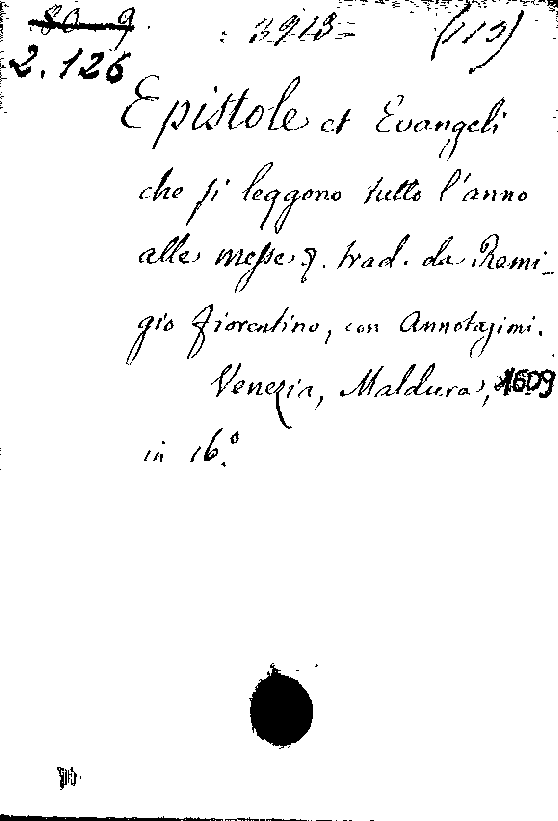 80 9 : 3913= (113)
2.126
Epistole et Evangeli
che si leggono tutto l'anno
alle messe &. trad. da Remi-
gio fiorentino, con Annotazioni.
Venezia, Maldura, 1609
in 16.°